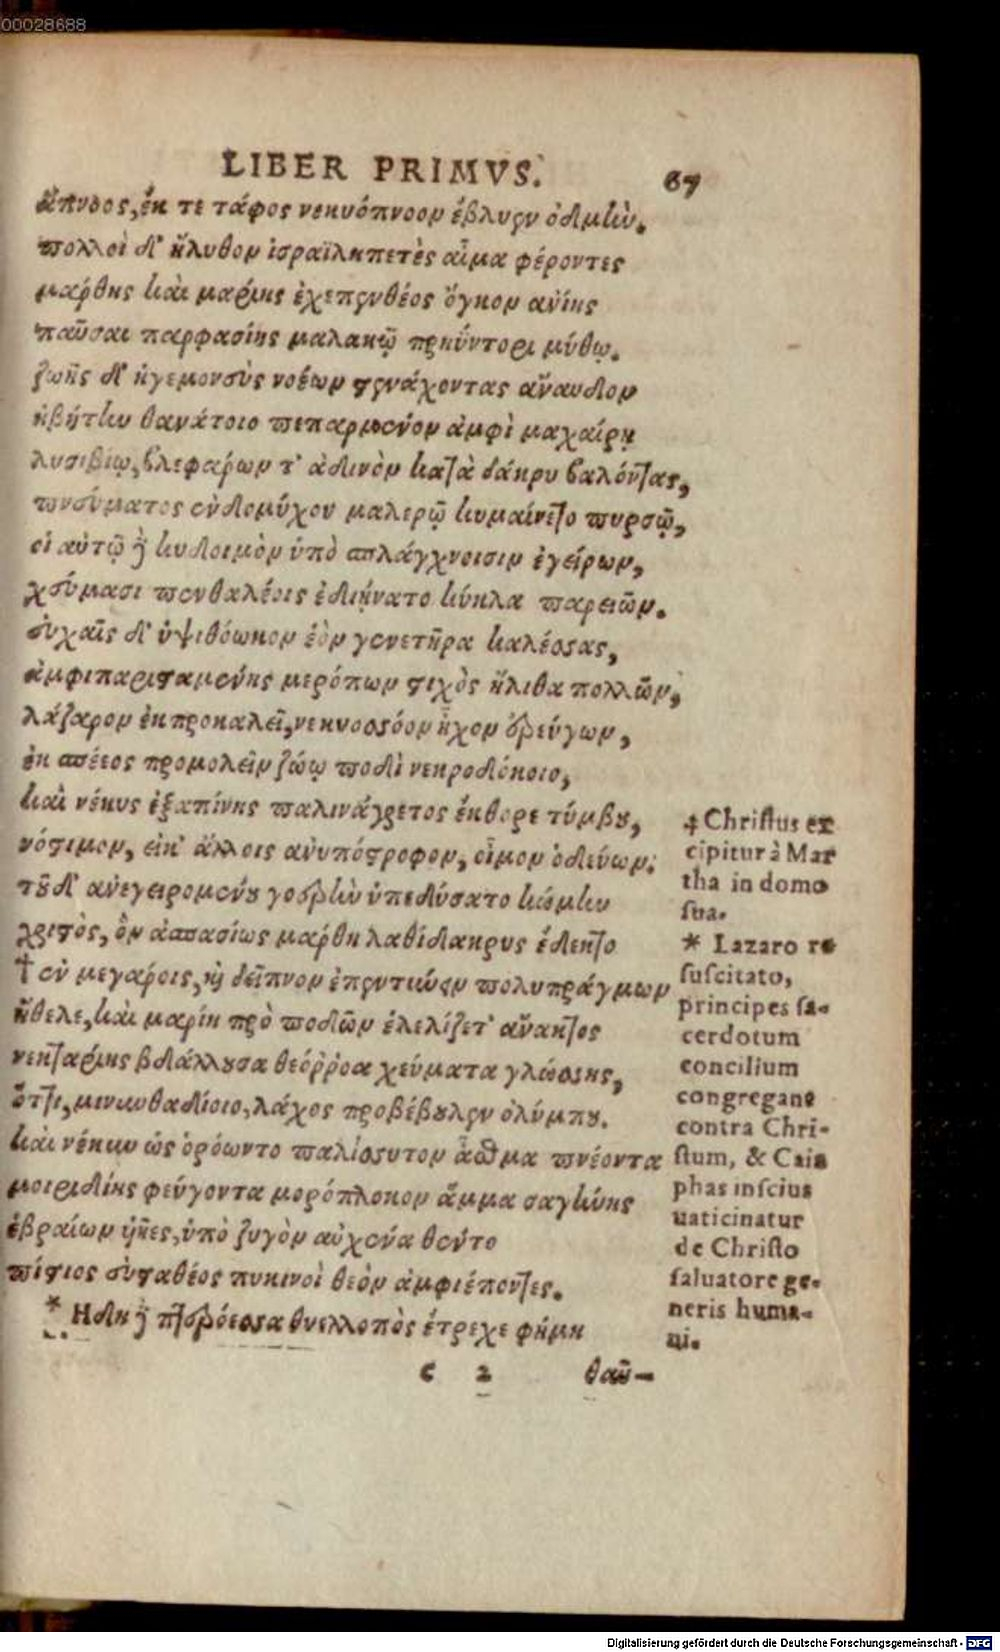 00028688
LIBER PRIMVS. 67
ἄπνοος, ἔκ τε τάφος νεκυόπνοον ἔβλυεν ὀδμὴν.
πολλοὶ δ' ἤλυθον ἰσραϊληπετὲς αἷμα φέροντες
μάρθης καὶ μαρίης ἐχεπευθέος ὄγκον ἀνίης
παῦσαι παρφασίης μαλακῷ πρηΰντορι μύθῳ.
ζωῆς δ' ἡγεμονεὺς νοέων στενάχοντας ἄναυδον
ἡβήτην θανάτοιο πεπαρμένον ἀμφὶ μαχαίρῃ
λυσιβίῳ, βλεφάρων τ' ἀδινὸν κατὰ δάκρυ βαλόντας,
πνεύματος ἐνδομύχου μαλερῷ κυμαίνετο πυρσῷ,
οἱ αὐτῷ δὲ κυδοιμὸν ὑπὸ σπλάγχνοισιν ἐγείρων,
χεύμασι πενθαλέοις ἐδιήνατο κύκλα παρειῶν.
εὐχαῖς δ' ὑψιθόωκον ἑὸν γενετῆρα καλέσσας,
ἀμφιπαρισταμένης μερόπων στιχὸς ἤλιθα πολλῶν,
λάζαρον ἐκπροκαλεῖ, νεκυοσσόον ἦχον ἐρεύγων,
ἐκ σπέεος προμολεῖν ζώῳ ποδὶ νεκροδόκοιο,
καὶ νέκυς ἐξαπίνης παλινάγρετος ἔκθορε τύμβου,
νόστιμον, εἰκ' ἄλλοις ἀνυπόστροφον, οἶμον ὁδεύων.
τοῦ δ' ἀνεγειρομένου γοερὴν ὑπεδύσατο κώμην
χριστὸς, ὃν ἀσπασίως μάρθη λαθίδακρυς ἔδεκτο
† ἐν μεγάροις, καὶ δεῖπνον ἐπεντύειν πολυπράγμων
ἤθελε, καὶ μαρίη πρὸ ποδῶν ἐλελίζετ' ἄνακτος
νεκταρίης βδάλλουσα θεόρροα χεύματα γλώσσης,
ὅττι, μινυνθαδίοιο, λάχος προβέβουλεν ὀλύμπου.
καὶ νέκυν ὡς ὁρόωντο παλίσσυτον ἆσθμα πνέοντα
μοιριδίης φεύγοντα μορόπλοκον ἅμμα σαγήνης
ἑβραίων υἱῆες, ὑπὸ ζυγὸν αὐχένα θέντο
πίστιος εὐσταθέος πυκινοὶ θεὸν ἀμφιέποντες.
* Ηδη δὲ πτερόεσσα θυελλοπὸς ἔτρεχε φήμη
c 2 θαῦ-
‡ Christus ex
cipitur à Mar
tha in domo
sua.
* Lazaro re
suscitato,
principes sa-
cerdotum
concilium
congregant
contra Chri-
stum, & Caia
phas inscius
uaticinatur
de Christo
saluatore ge-
neris huma-
ni.
Digitalisierung gefördert durch die Deutsche Forschungsgemeinschaft - DFG